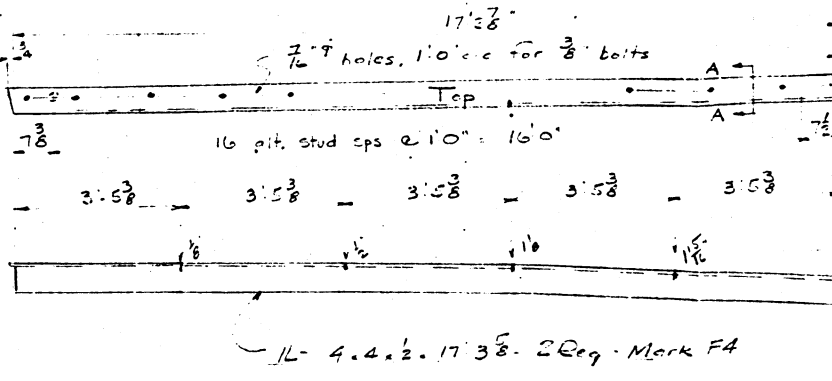 17'-2 7/8"
3/4
7/16" φ holes, 1'0" c-c for 3/8" bolts
A
Top
A
7 3/8
16 alt. stud sps @ 1'0" = 16'0"
7 1/2
3'-5 3/8 3'-5 3/8 3'-5 3/8 3'-5 3/8 3'-5 3/8
1/8 1/2 1 1/8 1 5/16
1L- 4 x 4 x 1/2 x 17'3 5/8 - 2 Req - Mark F4